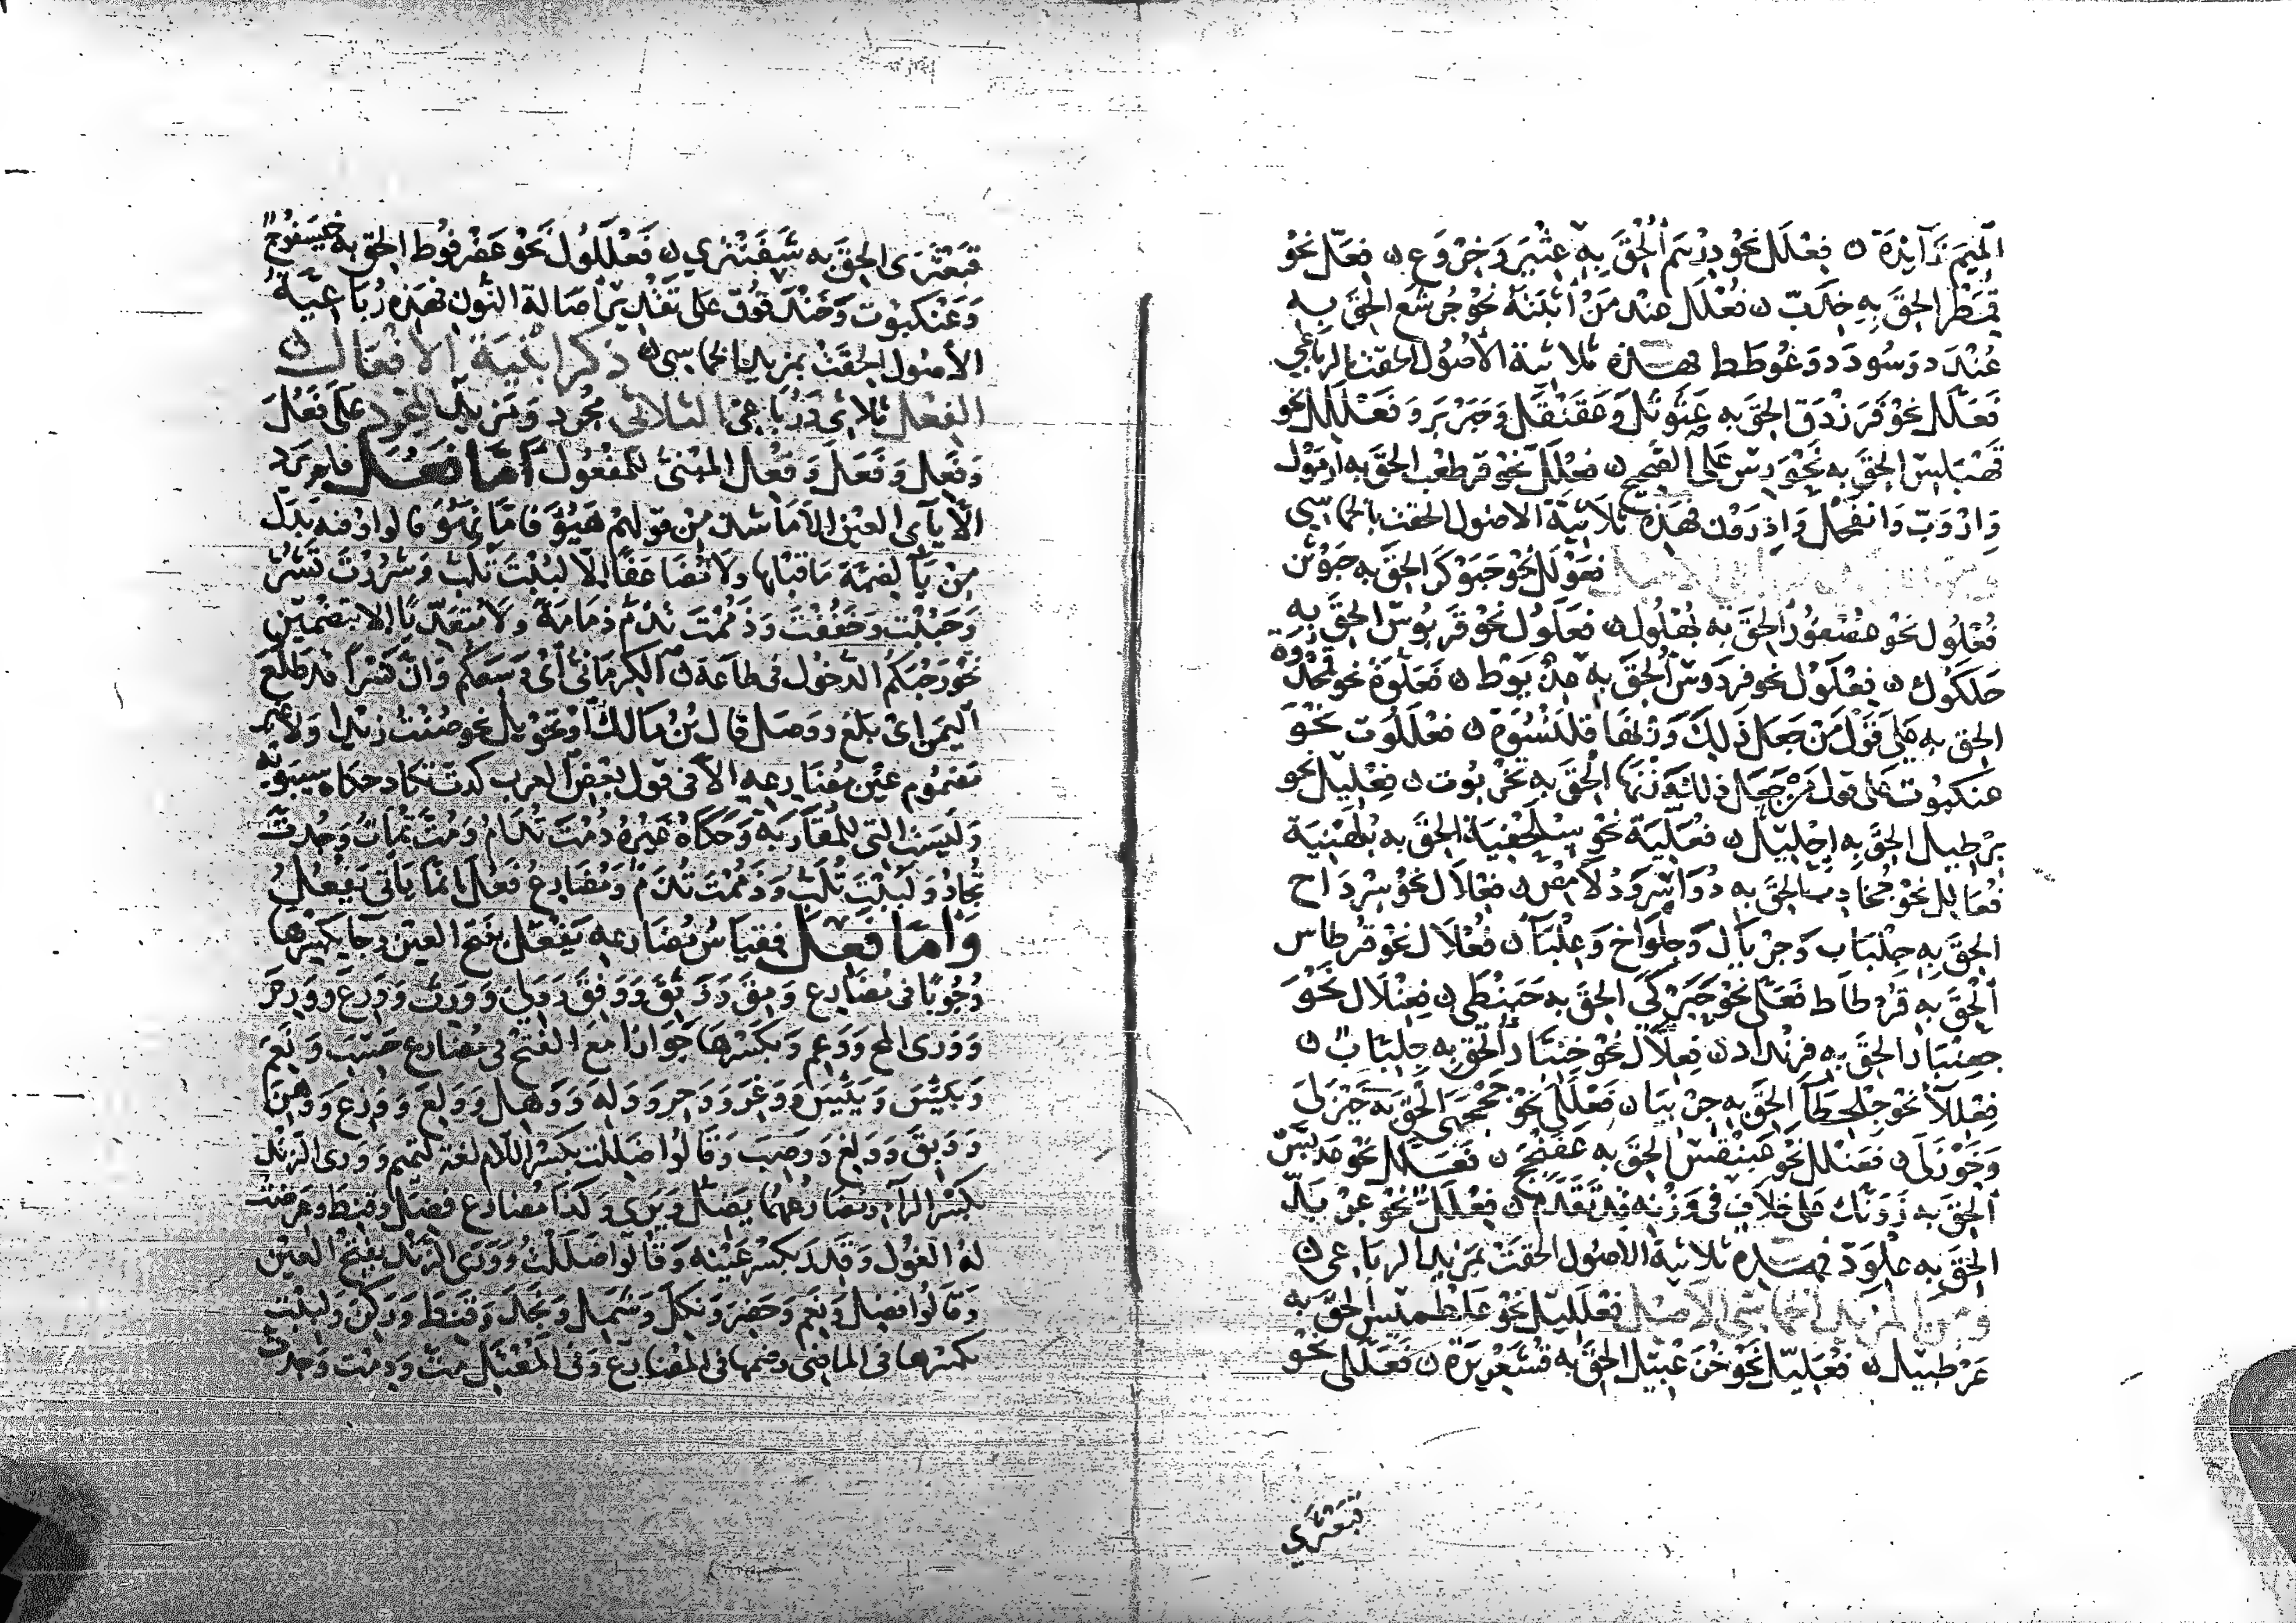 الميم زائدة ن فِعْلَل نحو دِرْهَم أُلْحِقَ به عِثْيَر وَخِرْوَع ن فِعَلّ نحو
قِمَطْر أُلحق به خِدَبّ ن فُعْلَل عند من أثبته نحو جُرشَع الحق به
عُنْدَد وسُودَد وعُوطَط فهذه ثلاثية الأصول الحقت بالرباعي
فَعَلَّل نحو فَرَزْدَق الحق به عَثَوْثَل وعَقَنْقَل وحَبَرْبَر وفَعْلَلِل نحو
قَهْبَلِس الحق به نخورش على الصحيح ن فِعْلَلّ نحو قرطعب الحق به ازمول
وازْوَبّ وانقحل واِدرون فهذه ثلاثية الأصول الحقت بالخماسي
فَعَوْلَل نحو حَبَوْكَر الحق به حَبَوْنَن
فُعْلُول نحو عُصْفُور الحق به بُهْلُول ن فَعَلُول نحو قَرَبُوس الحق به
حَلَكُوك ن فِعْلَوْل نحو فِرْدَوْس أُلحق به عِذْيَوْط ن فَعَلُّوَة نحو قمحدوة
الحق به على قول من جعل ذلك وزنها قلنسوة ن فَعْلَلُوت نحو
عنكبوت على قول من جعل ذلك وزنها أُلحق به نخربوت ن فِعْلِيل نحو
بِرْطِيل الحق به اِحْلِيل ن فُعَلِّيَة نحو سُلَحْفِيَة الحق به بُلَهْنِيَة
فُعَالِل نحو جُخَادِب الحق به دُوَاسِر ودُلَامِص ن فِعْلَال نحو سِرْدَاح
الحق به جِلْبَاب وجِرْيَال وجِلْوَاخ وعِلْبَاء ن فُعْلَال نحو قُرطاس
أُلحق به قُرْطَاط فَعَلَّى نحو حَبَرْكَى الحق به حَبَنْطَى ن فِعِنْلَال نحو
جِعِنْبَار الحق به فِرِنْدَاد ن فِعِلَّال نحو جِنِبَّار أُلحق به جِلِبَّاب ن
فِعْلِلاء نحو جِلْحِطَاء الحق به جِرْبِيَاء ن فَعْلَلَى نحو جَحْجَبَى الحق به خَيْزَلَى
وخَوْزَلَى ن فَعَنْلَل نحو عَبَنْقَس الحق به عَفَنْجَج ن فَعَلَّل نحو عَدَبَّس
أُلحق به زَوَنَّك على خلاف في وزنه قد تقدم ن فِعْلَلّ نحو عِرْبَدّ
الحق به عِلْوَدّ فهذه ثلاثية الأصول الحقت بمزيد الرباعي ن
ومن المزيد الخماسي الأصل فَعْلَلِيل نحو عَلْطَمِيس الحق به
عَرْطَبِيل ن فُعَلِّيل نحو خُزَعْبِيل الحق به قُشَعْرِيرَة ن فَعَلَّلَى نحو
قبعثرى
قَبَعْثَرَى الحق به شَفَنْتَرَى ن فَعْلَلُول نحو عَضْرَفُوط الحق به خَيْسَفُوج
وعَنْكَبُوت وخندقوق على تقدير أصالة النون فهذه رباعية
الأصول الحقت بمزيد الخماسي ن ذكر أبنية الأفعال ن
الفعل ثلاثي ورباعي الثلاثي مجرد ومزيد المجرد على فَعُلَ
وفَعِلَ وفَعَلَ وفُعِلَ المبني للمفعول أما فَعُلَ فلم يرد
يائي العين إلا ما شذ من قولهم هَيُؤَ فأما نَهُوَ فالواو فيه بدل
من ياء لضمة ما قبلها ولا مُضاعفًا إلا لَبُبْتَ تَلَبّ وشَرُرْتَ تَشُرّ
وحَبُبْتَ وخَفُفْتَ وذَمُمْتَ تَذُمّ ذمامة ولا متعديا إلا بتضمين
نحو رَحُبَكُم الدخول في طاعة الكرماني أي وسعكم وان بشرا قد طلع
اليمن اي بلغ ووصل قال بن مالك أو تحويل نحو صُنْتُ زيدا ولا غير
مضموم عين مضارعه إلا في قول بعض العرب كُدْتَ تكاد حكاه سيبويه
وليست التي للمقاربة وحكاه غيره دُمْتَ تَدَامُ ومُتَّ تَمَاتُ وجُدْتَ
تجاد ولَبُبْتَ تَلَبّ وذَمُمْتَ تَذَمّ ومضارع فَعُلَ إنما يأتي يَفْعُلُ
وأما فَعِلَ فقياس مضارعه يَفْعَل بفتح العين وجا بكسرها
وجوبًا في مضارع وَمِقَ ووَثِقَ ووَفِقَ ووَلِيَ ووَرِثَ ووَرِعَ ووَرِمَ
ووَرِي المخ ووَعِمَ وبكسرها جوازا مع الفتح في مضارع حَسِبَ ونَعِمَ
وبَئِسَ ويَئِسَ ووَغِرَ ووَحِرَ ووَلِهَ ووَهِلَ ووَلِعَ ووَزِعَ ووَهِنَ
ووَبِقَ ووَلِغَ ووَصِبَ وقالوا ضَلِلْت بكسر اللام لغة لتميم ووري الزند
بكسر الراء ومضارعهما يَضِلّ ويَرِي وكذا مضارع فضل وقنط وعرضت
له الغول وقَدِرَ بكسر عينه وقالوا ضَلَلْتُ ووَرَى الزند بفتح العين
وقالوا فضل ونعم وحضر ونكل وشمل ونجد وقنط وركن ولَبِبْت
بكسرها في الماضي وضمها في المضارع وفي المعتل مِتّ ودِمْت وجِدْت